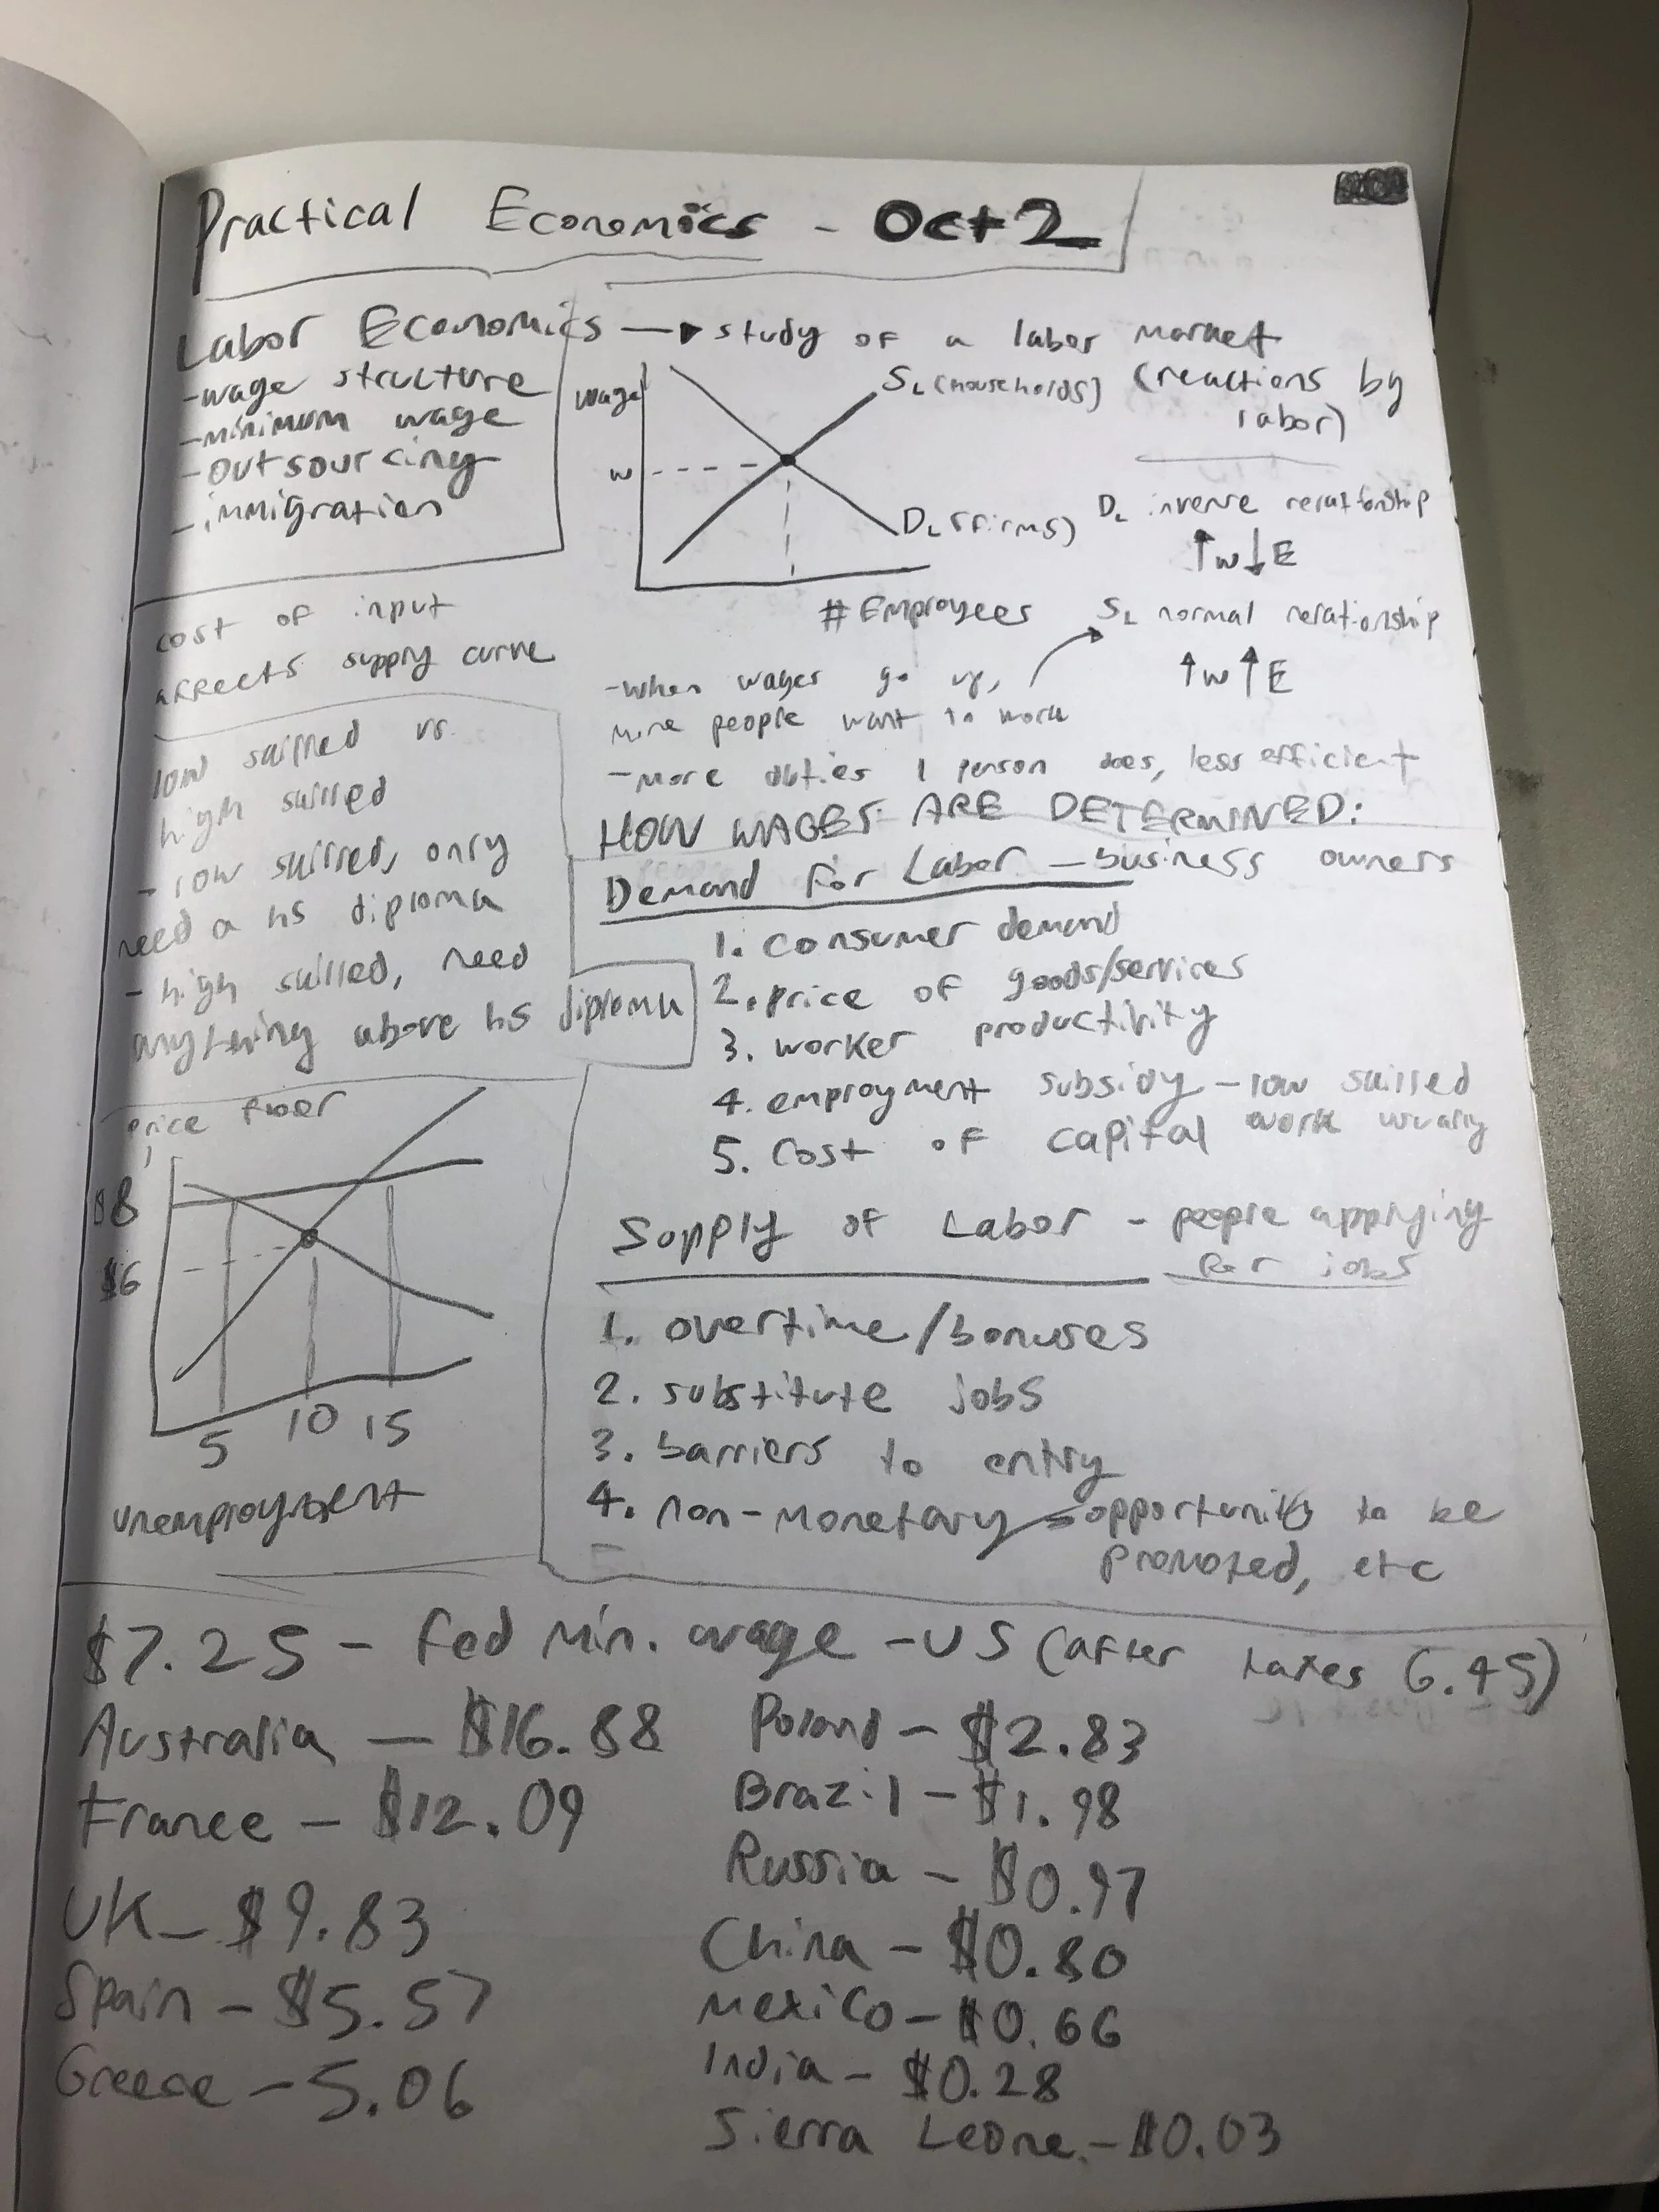 Practical Economics - Oct 2
Labor Economics → study of a labor market
(reactions by
labor)
- wage structure
- minimum wage
- outsourcing
- immigration
wage
w
SL (households)
DL (firms)
# Employees
DL inverse relationship
↑w↓E
SL normal relationship
↑w↑E
- When wages go up,
more people want to work
- More duties 1 person does, less efficient
cost of input
affects supply curve
low skilled vs.
high skilled
- low skilled, only
need a hs diploma
- high skilled, need
anything above hs diploma
price floor
$8
$6
5 10 15
unemployment
HOW WAGES ARE DETERMINED:
Demand for Labor - business owners
1. consumer demand
2. price of goods/services
3. worker productivity
4. employment subsidy - low skilled
work usually
5. cost of capital
Supply of Labor - people applying
for jobs
1. overtime/bonuses
2. substitute jobs
3. barriers to entry
4. non-monetary - opportunity to be
promoted, etc
$7.25 - Fed Min. wage - US (after taxes 6.45)
Australia - $16.88
France - $12.09
UK - $9.83
Spain - $5.57
Greece - 5.06
Poland - $2.83
Brazil - $1.98
Russia - $0.97
China - $0.80
Mexico - $0.66
India - $0.28
Sierra Leone - $0.03